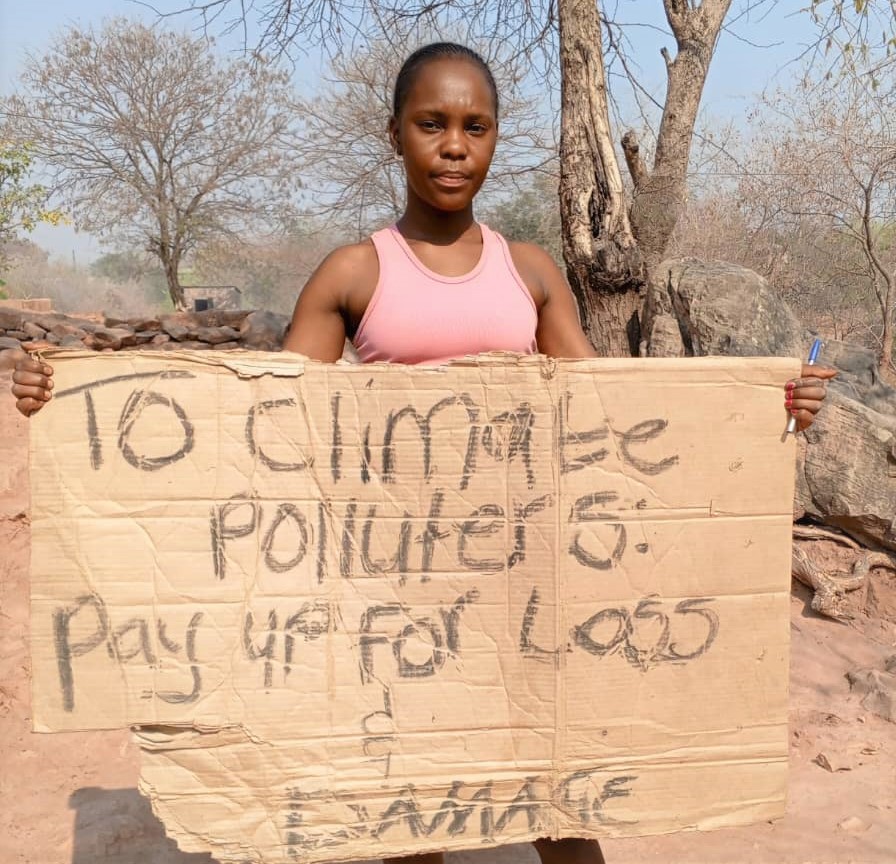 To climate
polluters:
Pay up for Loss
DAMAGE